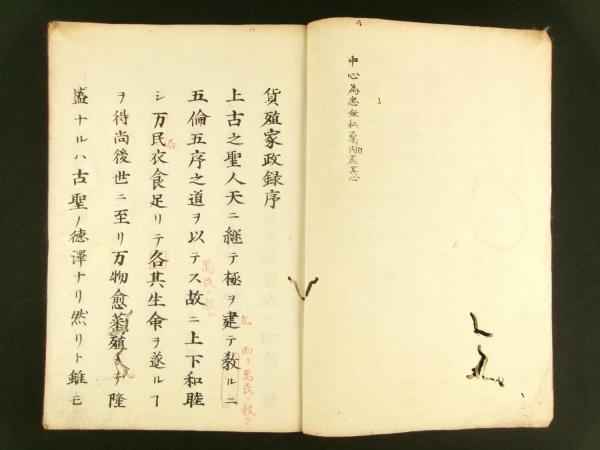 中心為忠
貨殖家政録序
上古之聖人天ニ継テ極ヲ建テ教ルニ
五倫五序之道ヲ以テス故ニ上下和睦
シ万民衣食足リテ各其生命ヲ遂ルヿ
ヲ得尚後世ニ至リ万物愈蕃殖シテ隆
盛ナルハ古聖ノ徳澤ナリ然リト雖モ